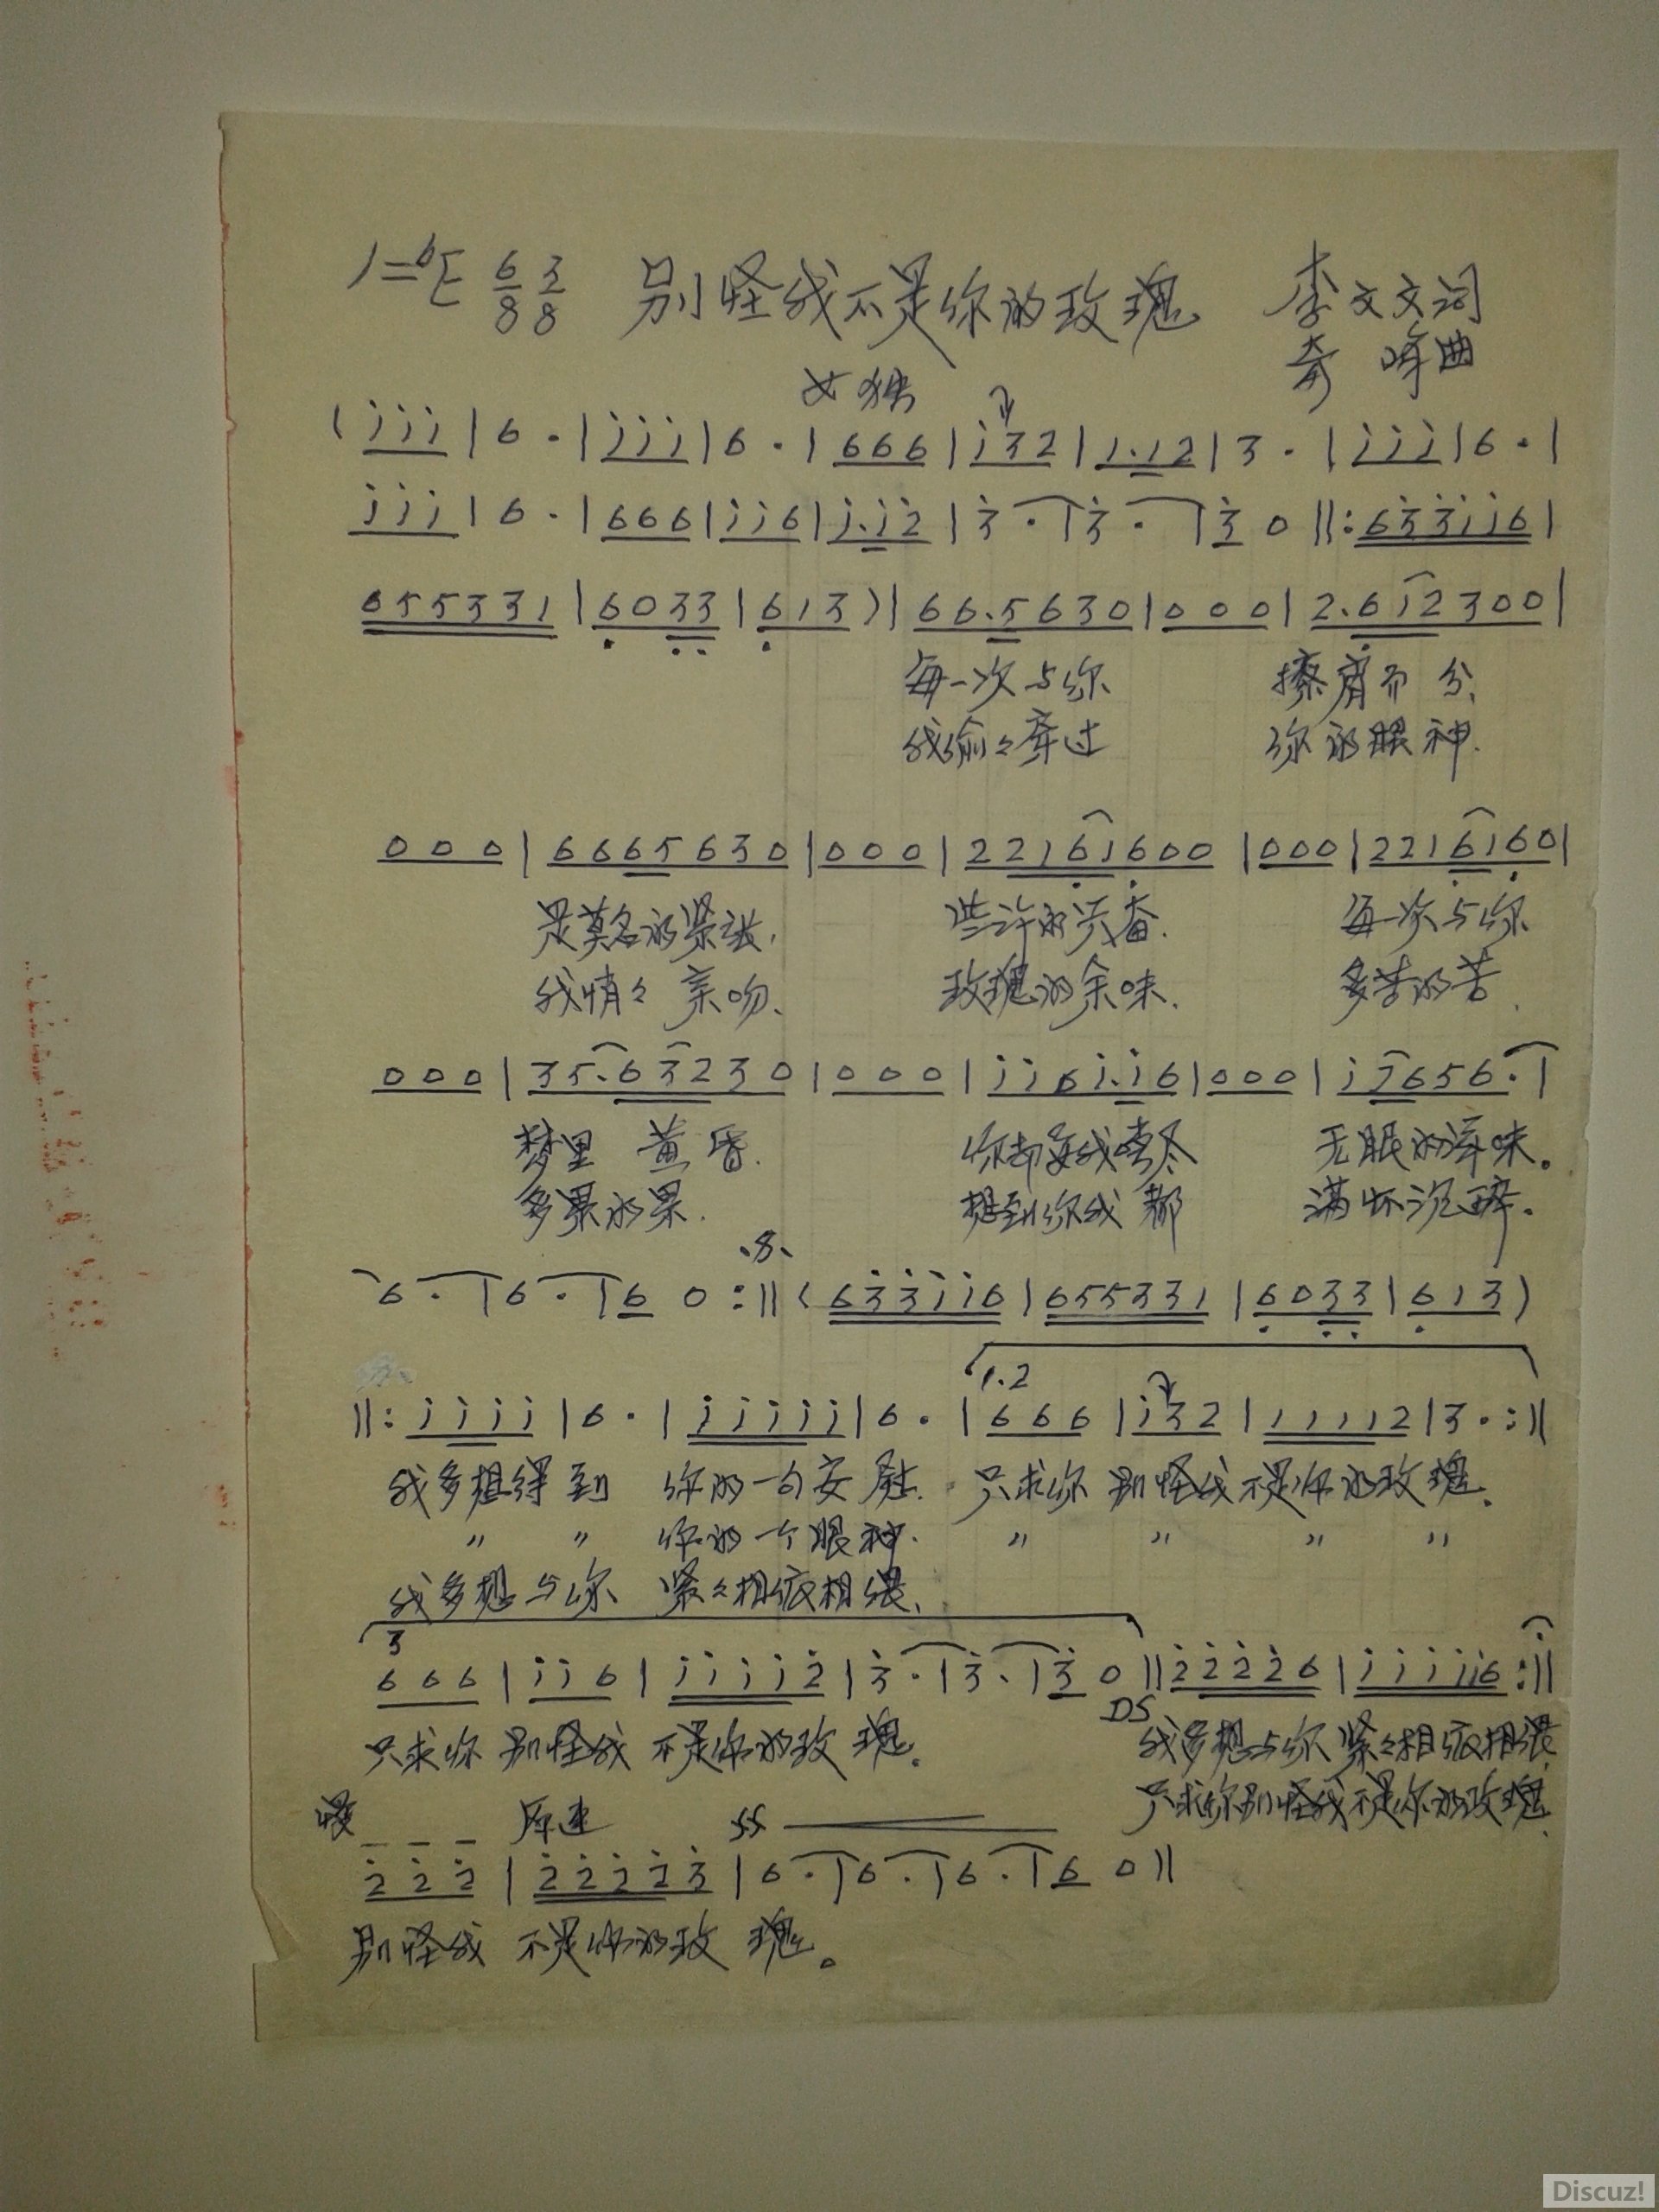 1=♭E 6/8 3/8 别怪我不是你的玫瑰 李文文词
女独 奇峰曲
(i̇ i̇ i̇ | 6 · | i̇ i̇ i̇ | 6 · | 6 6 6 | i̇ 3 2 | 1 . 1 2 | 3 · | i̇ i̇ i̇ | 6 · |
i̇ i̇ i̇ | 6 · | 6 6 6 | i̇ i̇ 6 | i̇ . i̇ 2̇ | 3̇ · | 3̇ · | 3̇ 0 ||: 6 3̇ 3̇ i̇ i̇ 6 |
6 5 5 3 3 1 | 6̣ 0 3̣ 3̣ | 6̣ 1 3 ) | 6 6 . 5 6 3 0 | 0 0 0 | 2 . 6̣ 1 2 3 0 0 |
每一次与你 擦肩而分、
我偷々牵过 你的眼神.
0 0 0 | 6 6 6 5 6 3 0 | 0 0 0 | 2 2 1 6̣ 1 6̣ 0 0 | 0 0 0 | 2 2 1 6̣ 1 6̣ 0 |
是莫名的紧张, 些许的 每一次与你
我悄々亲吻、 玫瑰的余味. 多苦的苦.
0 0 0 | 3 5 . 6 3 2 3 0 | 0 0 0 | i̇ i̇ 6 i̇ . i̇ 6 | 0 0 0 | i̇ 7 6 5 6 · |
梦里 黄昏. 你却要我尝尽 无眠的滋味。
多累的累. 想到你我都 满怀沉醉.
6 · | 6 · | 6 0 :|| ( 6 3̇ 3̇ i̇ i̇ 6 | 6 5 5 3 3 1 | 6̣ 0 3̣ 3̣ | 6̣ 1 3 )
1.2
||: i̇ i̇ i̇ i̇ | 6 · | i̇ i̇ i̇ i̇ i̇ | 6 · | 6 6 6 | i̇ 3 2 | 1 1 1 1 2 | 3 · :||
我多想得到 你的一句安慰. 只求你别怪我不是你的玫瑰.
〃 〃 你的一个眼神. 〃 〃 〃 〃
我多想与你 紧々相依相偎、
3
6 6 6 | i̇ i̇ 6 | i̇ i̇ i̇ i̇ 2̇ | 3̇ · | 3̇ · | 3̇ 0 || 2̇ 2̇ 2̇ 2̇ 6 | i̇ i̇ i̇ i̇ i̇ 6 :||
DS
只求你别怪我不是你的玫瑰. 我多想与你紧々相依相偎
只求你别怪我不是你的玫瑰.
慢 原速
2̇ 2̇ 2̇ | 2̇ 2̇ 2̇ 2̇ 3̇ | 6 · | 6 · | 6 · | 6 0 ||
别怪我 不是你的玫瑰。
Discuz!